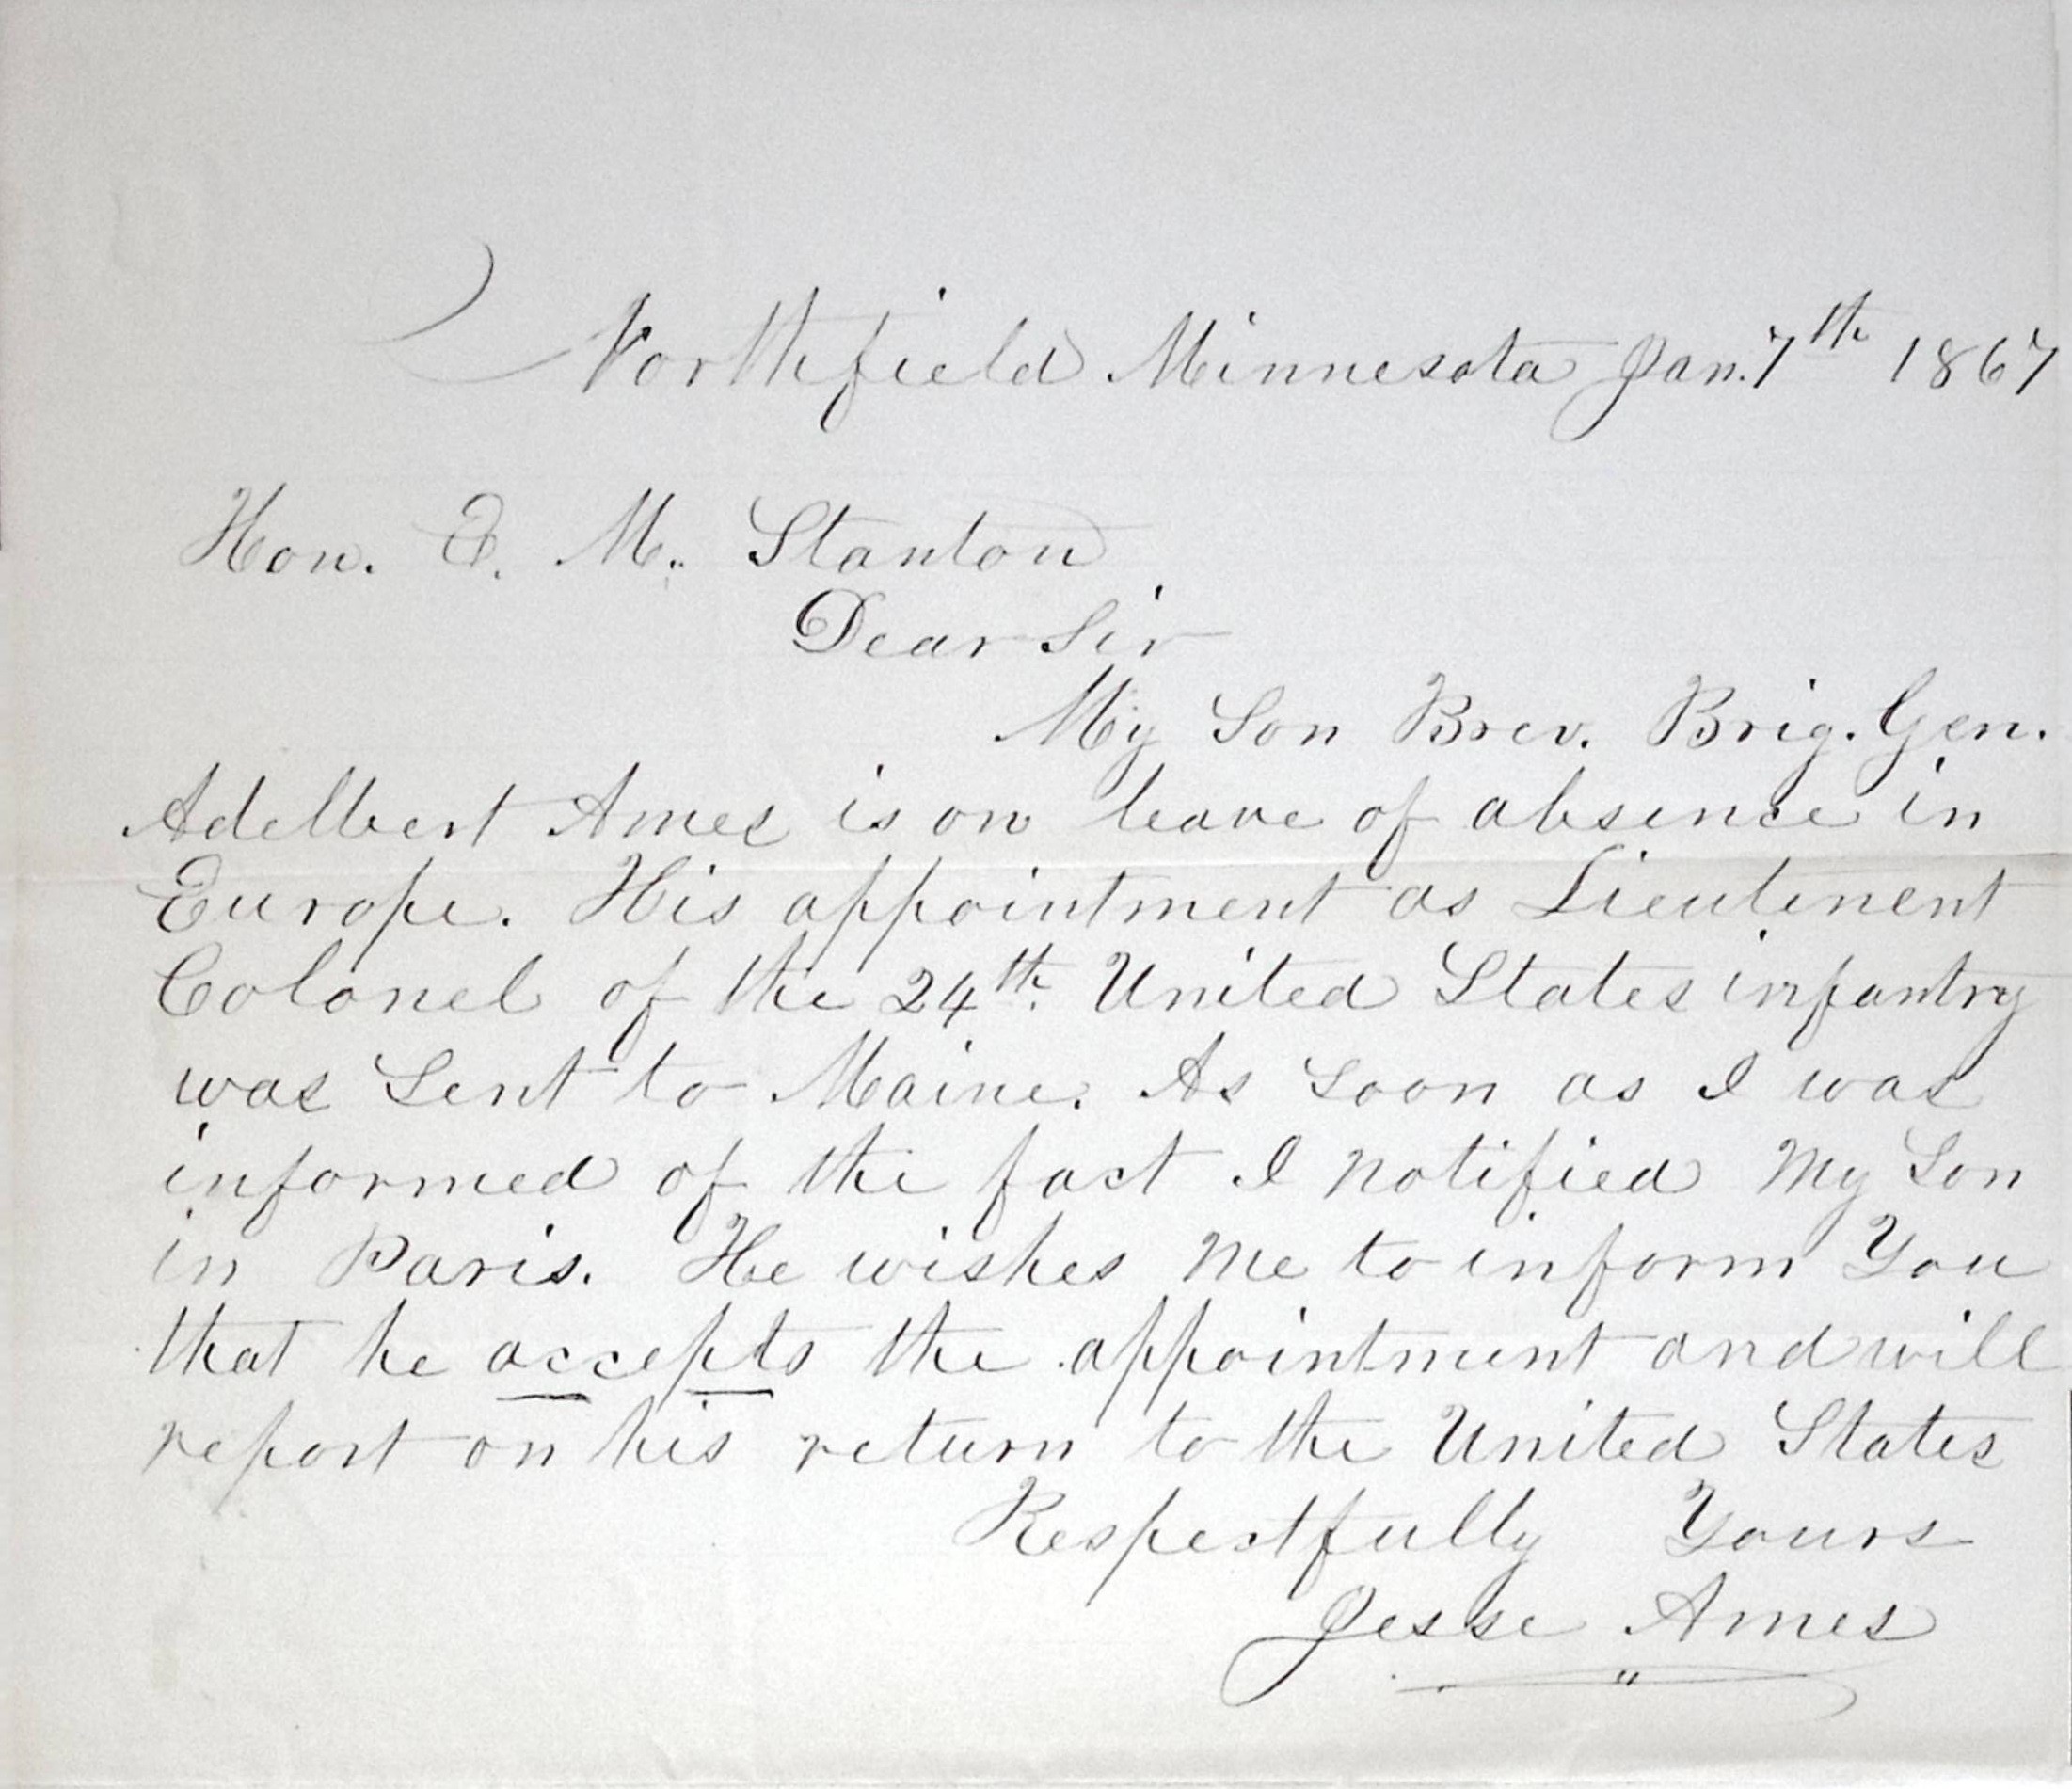 Northfield Minnesota Jan. 7th 1867
Hon. E. M. Stanton
Dear Sir
My Son Brev. Brig. Gen.
Adelbert Ames is on leave of absence in
Europe. His appointment as Lieutenent
Colonel of the 24th United States infantry
was Sent to Maine. As Soon as I was
informed of the fact I notified My Son
in Paris. He wishes Me to inform You
that he accepts the appointment and will
report on his return to the United States
Respectfully Yours
Jesse Ames